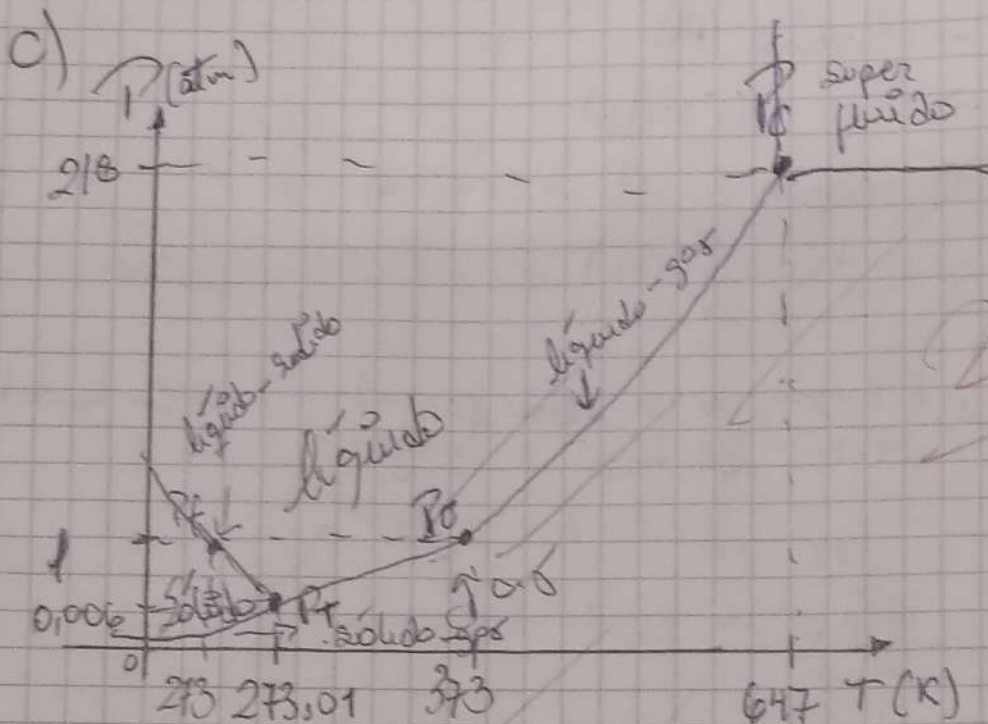 c)
P (atm)
218
super
fluido
líquido-gás
líquido-sólido
líquido
Pf
Pe
1
gás
0,006
Sólido
Pt
sólido-gás
0
273 273,01 373 647 T (K)